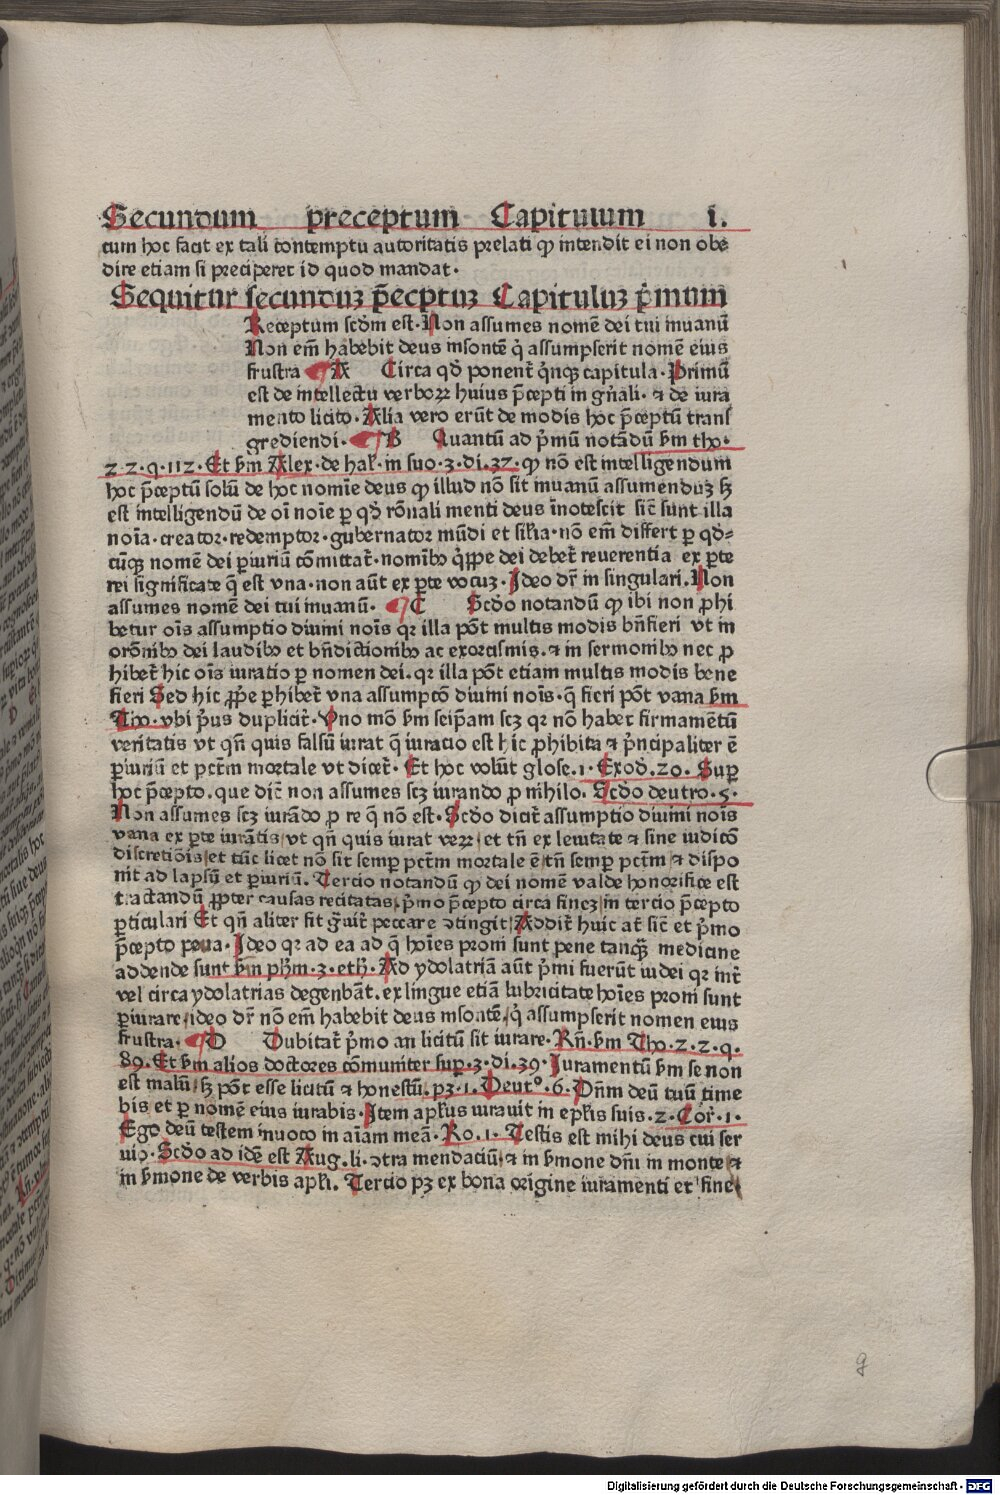 Secundum preceptum Capitulum i.
tum hoc facit ex tali contemptu autoritatis prelati ꝙ intendit ei non obe
dire etiam si preciperet id quod mandat.
Sequitur secunduʒ p̄ecptuʒ Capituluʒ p̄mum
Receptum scd̄m est. Non assumes nomē dei tui inuanū
Non em̄ habebit deus insontē q̇ assumpserit nomē eius
frustra A Circa qd̄ ponent̄ q̄nqꝫ capitula. Primū
est de intellectu verboꝝ huius p̄cepti in gn̄ali. ⁊ de iura
mento licito. Alia vero erūt de modis hoc p̄ceptū transſ
grediendi. B Quantū ad p̄mū notādū ẜm tho.
2.2.q.112. Et ẜm Alex. de hal. in suo.3.di.37. ꝙ nō est intelligendum
hoc p̄ceptū solū de hoc nomīe deus ꝙ illud nō sit inuanū assumenduʒ sꝫ
est intelligendū de oī noīe ꝑ qd̄ rōnali menti deus īnotescit sicͭ sunt illa
noīa. creator. redemptor. gubernator mūdi et sil̄ia. nō em̄ differt ꝑ qd̄-
cūqꝫ nomē dei ꝑiuriū cōmittat̄. nomībꝰ q̇ppe dei debet̄ reuerentia ex ꝑte
rei significate q̄ est vna. non aūt ex ꝑte vocuʒ. Ideo dr̄ in singulari. Non
assumes nomē dei tui inuanū. C Scd̄o notandū ꝙ ibi non ꝓhi
betur oīs assumptio diuini noīs qꝛ illa pōt multis modis bn̄fieri vt in
orōnibꝰ dei laudibꝰ et bn̄dictionibꝰ ac exorcismis. ⁊ in sermonibꝰ nec ꝓ
hibet̄ hic oīs iuratio ꝑ nomen dei. qꝛ illa pōt etiam multis modis bene
fieri Sed hic ꝓṗe ꝓhibet̄ vna assumptō diuini noīs. q̄ fieri pōt vana ẜm
Tho. vbi p̄us duplicit̄. Uno mō ẜm seip̄am scꝫ qꝛ nō habet firmamētū
veritatis vt qn̄ quis falsū iurat q̄ iuracio est hic ꝓhibita ⁊ p̄ncipaliter ē
ꝑiuriū et pctm̄ mortale vt dicet̄. Et hoc volūt glose.1. Exod̄.20. Suꝑ
hoc p̄cepto. que dic̄ non assumes scꝫ iurando ꝓ nihilo. Scd̄o deutro.5.
Non assumes scꝫ iurādo ꝓ re q̄ nō est. Scd̄o dicit̄ assumptio diuini nois
vana ex ꝑte iurātis vt qn̄ quis iurat veꝝ et tn̄ ex leuitate ⁊ sine iudicō
discretiōis et tūc licet nō sit semꝑ pctm̄ mortale ē tn̄ semꝑ pctm̄ ⁊ dispo
nit ad lapsū et ꝑiuriū. Tercio notandū ꝙ dei nomē valde honorifice est
tractandū ꝓpter causas recitatas p̄mo p̄cepto circa fineʒ in tercio p̄cepto
ꝑticulari Et qn̄ aliter fit gͣuit̄ peccare ꝯtingit Addit̄ huic at̄ sic̄ et p̄mo
p̄cepto pena. Ideo qꝛ ad ea ad q̄ hoīes proni sunt pene tanqꝫ medicine
addende sunt ẜm ph̄m.3.eth̄. Ad ydolatriā aūt p̄mi fuerūt iudei qꝛ int̄
vel circa ydolatrias degenbāt. ex lingue etiā lubricitate hoīes proni sunt
ꝑiurare. ideo dr̄ nō em̄ habebit deus insontē. q̇ assumpserit nomen eius
frustra. D Dubitat̄ p̄mo an licitū sit iurare. Rn̄. ẜm Tho.2.2.q.
89. Et ẜm alios doctores cōmuniter sup.3.di.39. Iuramentū ẜm se non
est malū. sꝫ pōt esse licitū ⁊ honestū. pꝫ.1. Deutº.6. Dn̄m deū tuū time
bis et ꝑ nomē eius iurabis. Item apl̄us iurauit in epl̄is suis.2.Cor̄.1.
Ego deū testem inuoco in aīam meā. Ro.1. Testis est mihi deus cui ser
uio. Scd̄o ad idē est Aug. li. ꝯtra mendaciū. ⁊ in ẜmone dn̄i in monte ⁊
in ẜmone de verbis apl̄i. Tercio pꝫ ex bona origine iuramenti et fine.
g
Digitalisierung gefördert durch die Deutsche Forschungsgemeinschaft - DFG